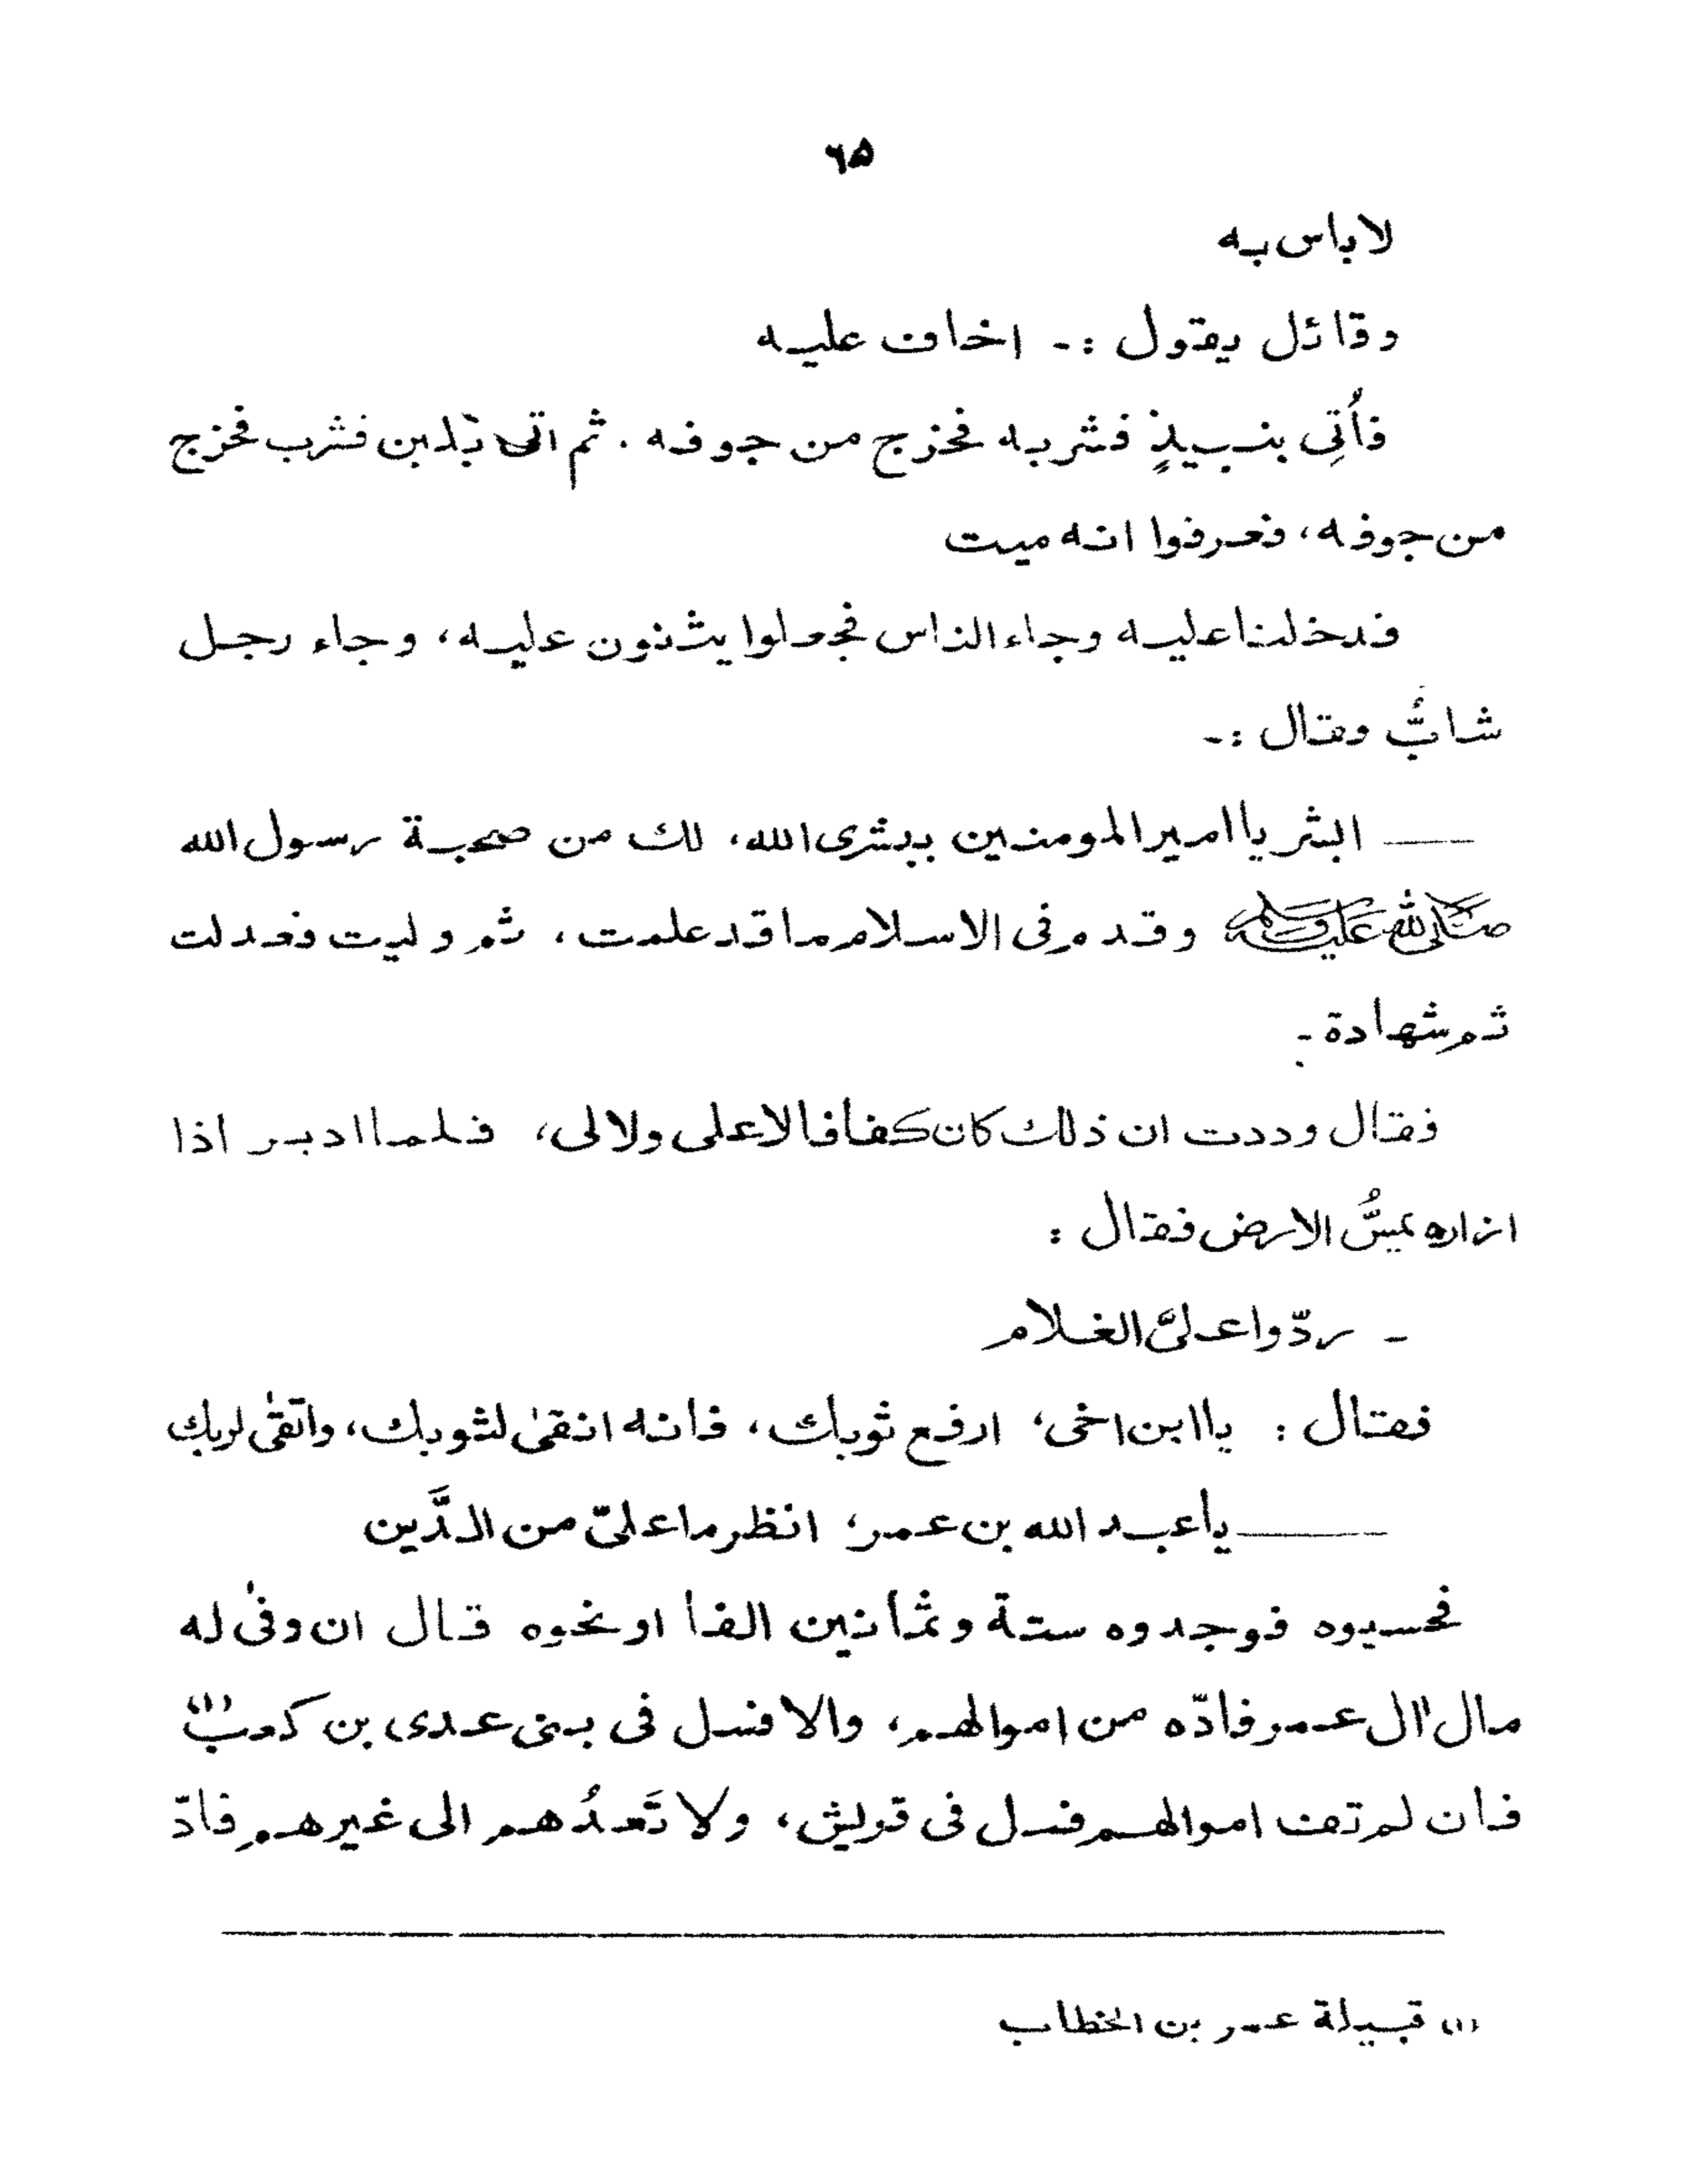 ٦۵
لاباس به
وقائل يقول :- اخاف عليه
فأُتِی بنبيذٍ فشربه فخرج من جوفه . ثم اتی بلبن فشرب فخرج
من جوفه، فعرفوا انه ميت
فدخلنا عليه وجاء الناس فجعلوا يثنون عليه، وجاء رجل
شابٌّ وقال :-
— ابشر يا امير المومنين ببشری الله، لك من صحبة رسول الله
صلی الله علیه وسلم وقدم فی الاسلام ما قد علمت، ثم وليت فعدلت
ثم شهادة -
فقال وددت ان ذلك كان كفافا لا علی ولا لی، فلما ادبر اذا
ازاره يمسُّ الارض فقال :
- ردّوا علیَّ الغلام
فقال : يا ابن اخی، ارفع ثوبك، فانه انقیٰ لثوبك، واتقیٰ لربك
— يا عبد الله بن عمر؛ انظر ما علیّ من الدَّين
فحسبوه فوجدوه ستة وثمانين الفا او نحوه قال ان وفیٰ له
مال اٰل عمر فادّه من اموالهم، والا فسل فی بنی عدی بن كعب (١)
فان لم تف اموالهم فسل فی قريش، ولا تَعدُهم الی غيرهم فادّ
(١) قبيلة عمر بن الخطاب